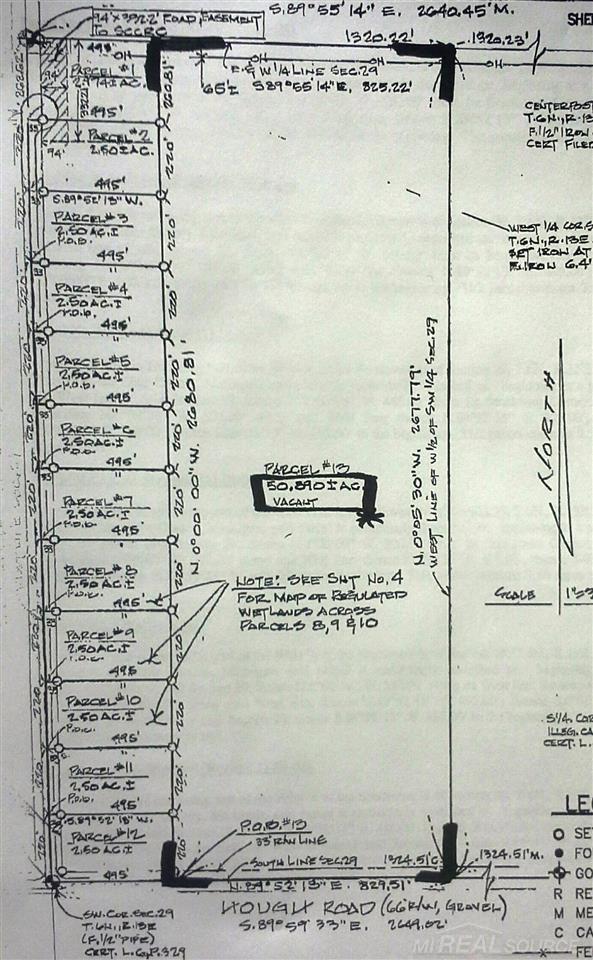 S.89°55'14"E. 2640.45'M.
94'x392.2' ROAD EASEMENT
TO SCCRC
1320.22'
1320.23'
495'
OH
E. & W 1/4 LINE SEC.29
65'± S.89°55'14"E. 825.22'
PARCEL #1
2.974± AC.
94'
220.81'
495'
PARCEL #2
2.50± AC.
94'
220'
495'
S.89°52'13"W.
PARCEL #3
2.50 AC.±
P.O.B.
495'
"
PARCEL #4
2.50 AC.±
P.O.B.
495'
"
PARCEL #5
2.50 AC.±
P.O.B.
495'
"
PARCEL #6
2.50 AC.±
P.O.B.
495'
"
PARCEL #7
2.50 AC.±
P.O.B.
495'
"
PARCEL #8
2.50 AC.±
P.O.B.
495'
"
PARCEL #9
2.50 AC.±
P.O.B.
495
"
PARCEL #10
2.50 AC.±
P.O.B.
495'
"
PARCEL #11
2.50 AC.±
P.O.B.
495'
S.89°52'13"W.
PARCEL #12
2.50 AC.±
495'
220'
N.0°00'00"W. 2680.81'
PARCEL #13
50.890± AC.
VACANT
NOTE: SEE SHT No. 4
FOR MAP OF REGULATED
WETLANDS ACROSS
PARCELS 8, 9 & 10
N.0°05'30"W. 2677.79'
WEST LINE OF W/1/2 OF SW 1/4 SEC.29
CENTERPOST
T.6N., R.13
F. 1/2" IRON
CERT FILE
WEST 1/4 COR. S
T.6N., R.13E
SET IRON AT
E. IRON 6.4'
NORTH
SCALE
S1/4 COR
ILLEG. CA
CERT. L.
P.O.B. #13
33' RAN LINE
SOUTH LINE SEC.29
1324.51'C
1324.51'M.
N.89°52'13"E. 829.51'
HOUGH ROAD (66' R/W, GRAVEL)
S.89°59'33"E. 2649.02'
SW. COR. SEC.29
T.6N., R.13E
(F. 1/2" PIPE)
CERT. L.6, P.329
LE
SE
FO
GO
R RE
M ME
C CA
FE
MIREALSOURCE